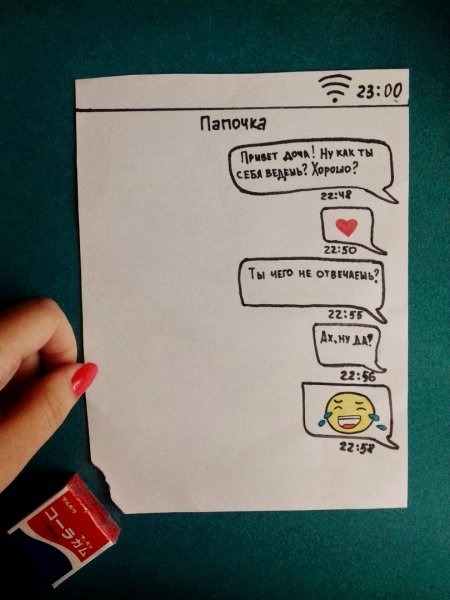 23:00
Папочка
Привет доча! Ну как ты
себя ведешь? Хорошо?
22:48
22:50
Ты чего не отвечаешь?
22:55
Ах, ну да!
22:56
22:58
マルカワ
コーラガム